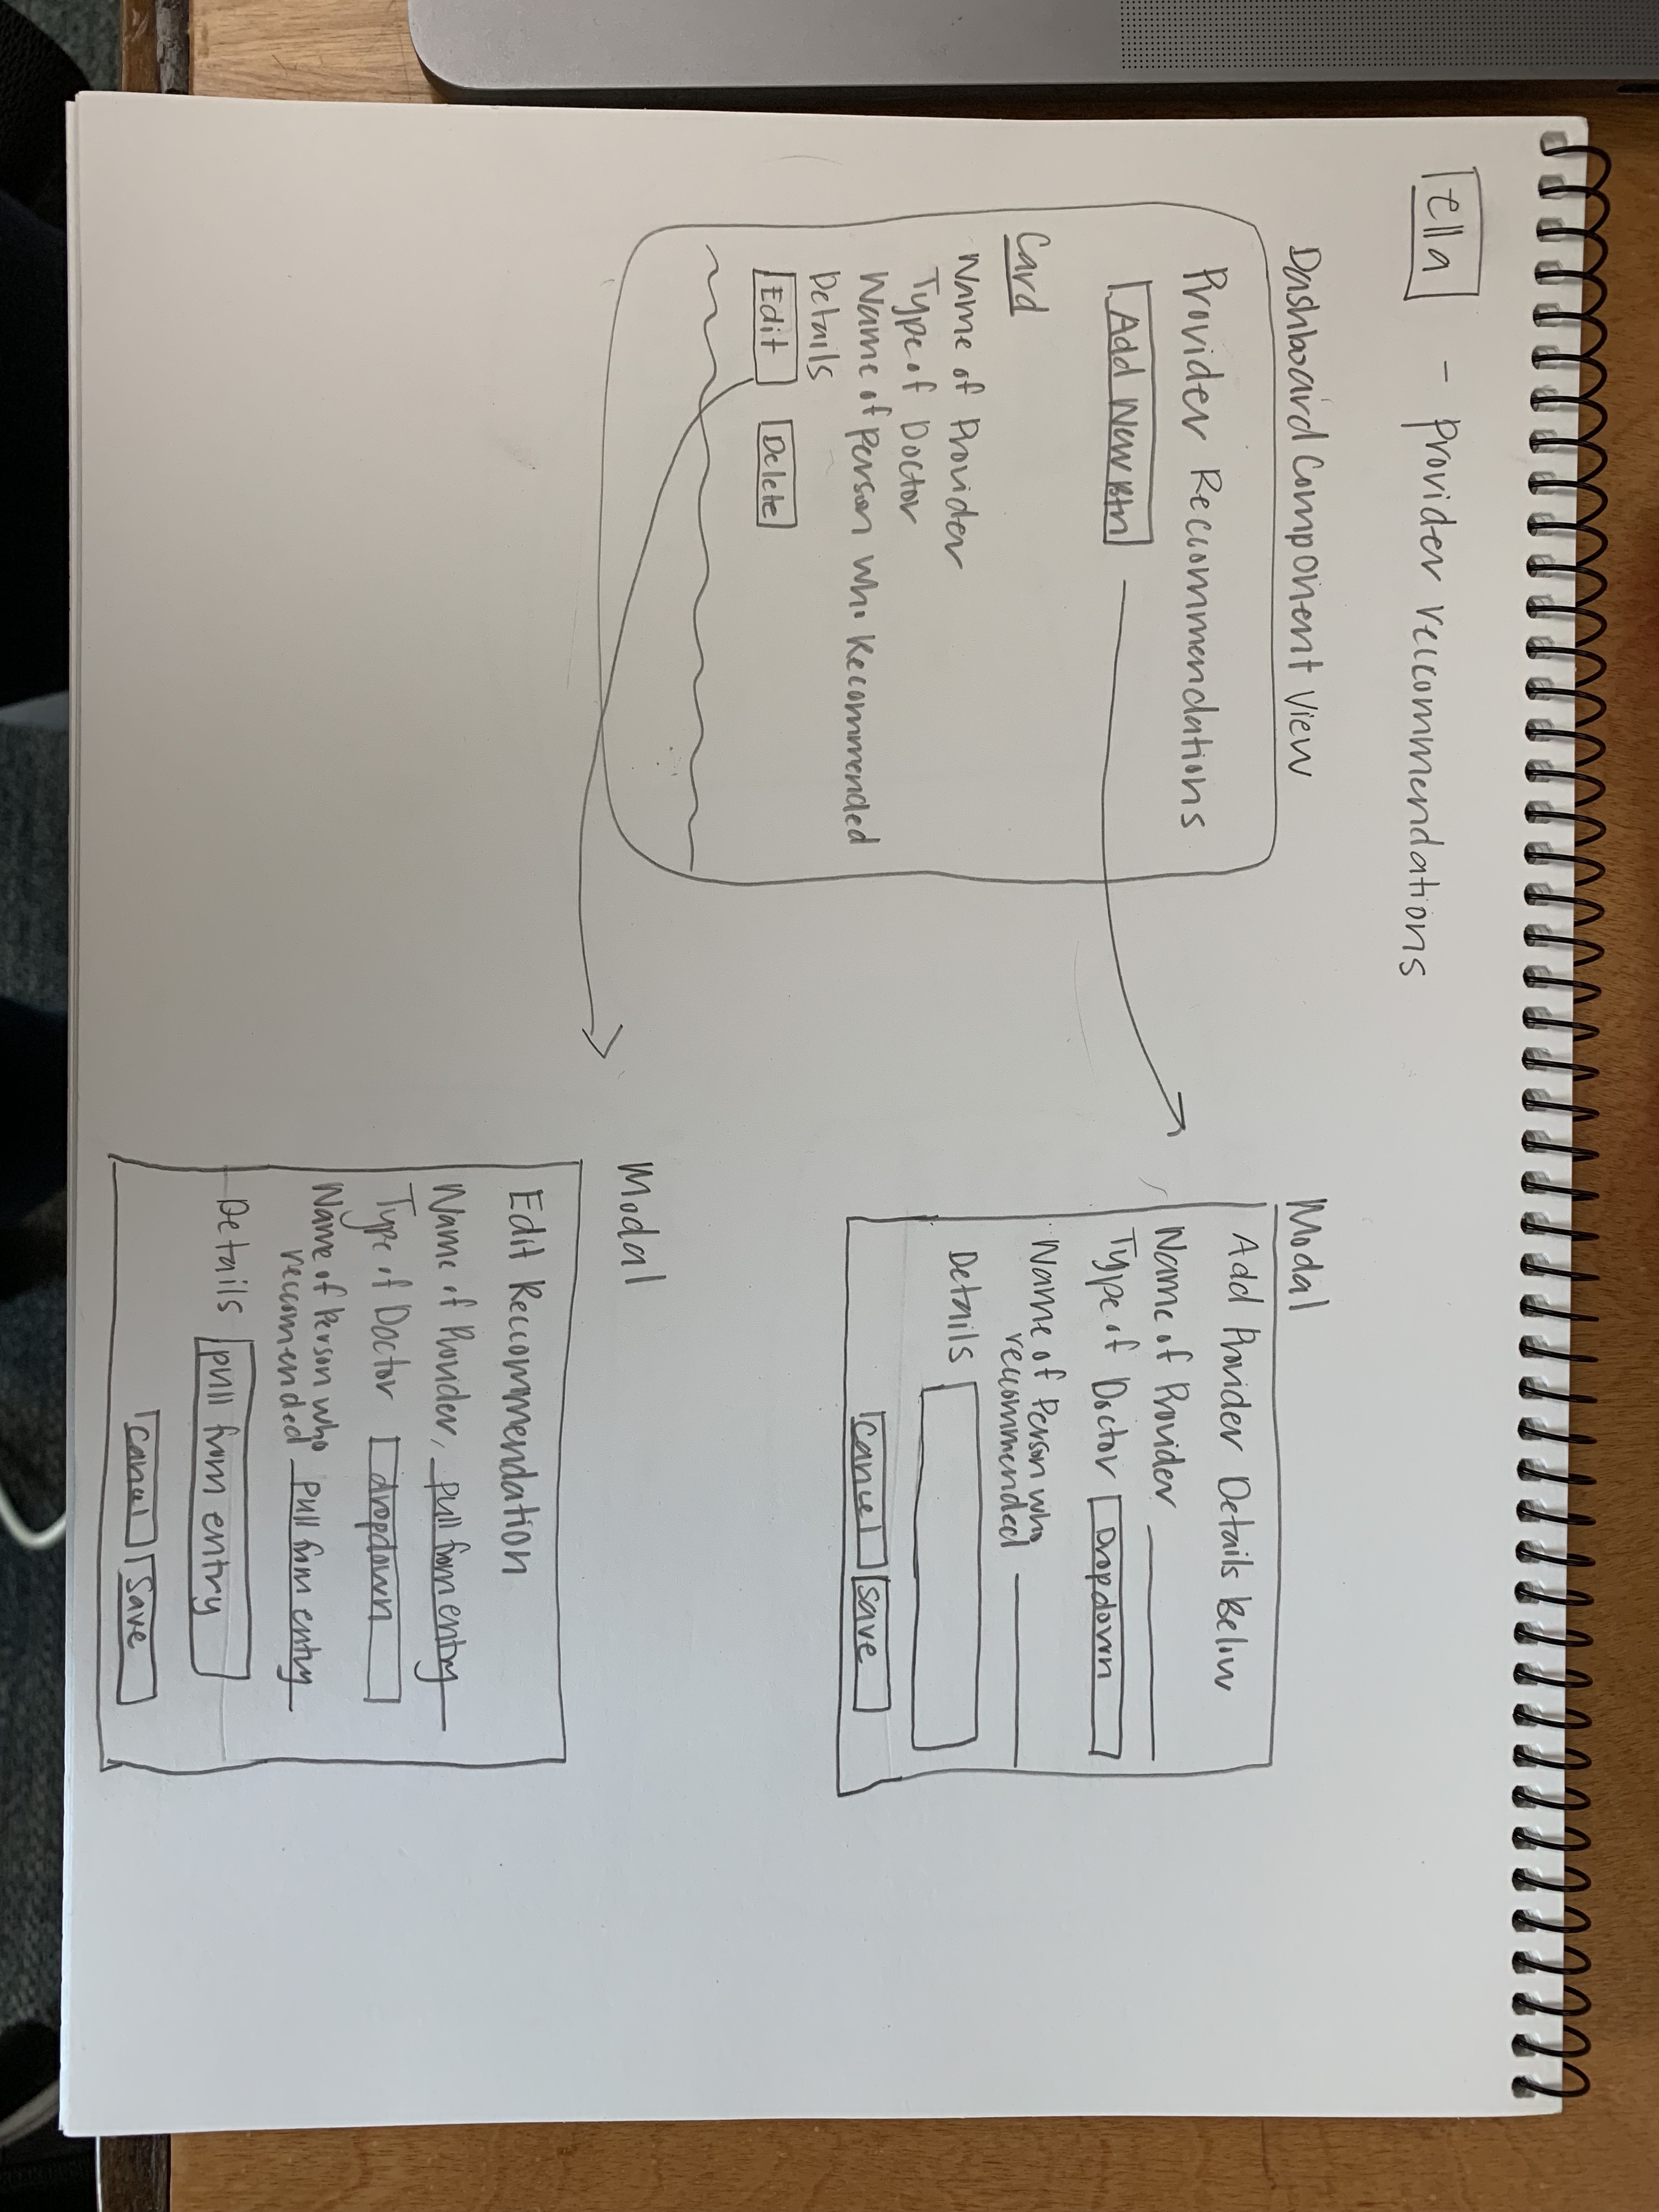 ella - provider reccommendations
Dashboard Component View
Provider Reccommendations
Add New Btn
Card
Name of Provider
Type of Doctor
Name of Person who Reccommended
Details
Edit Delete
Modal
Add Provider Details Below
Name of Provider
Type of Doctor Dropdown
Name of Person who
reccommended
Details
Cancel Save
Modal
Edit Reccommendation
Name of Provider, pull from entry
Type of Doctor dropdown
Name of Person who
recommended pull from entry
Details pull from entry
Cancel Save